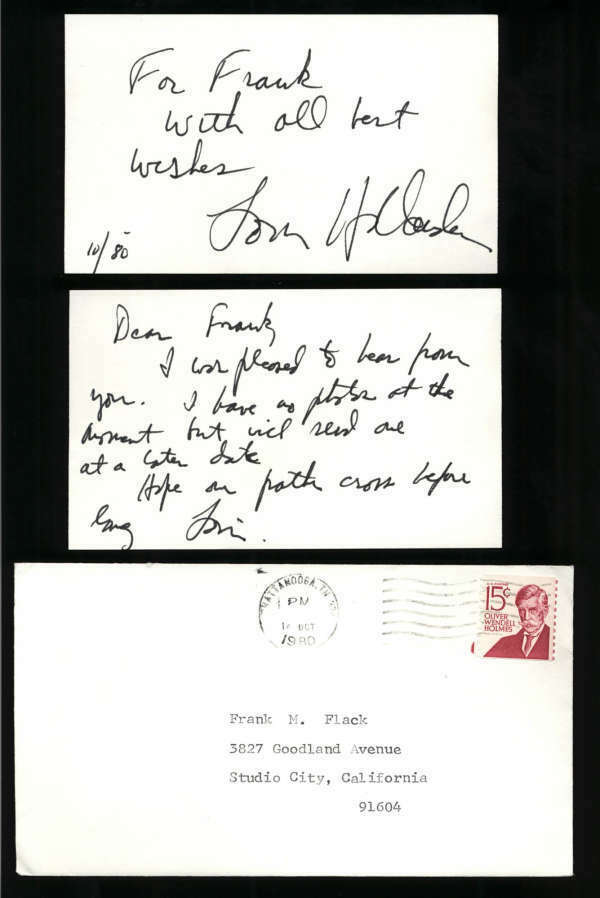 For Frank
with all best
wishes
10/80
Dear Frank,
I was pleased to hear from
you. I have no photos at the
moment but will send one
at a later date
Hope our paths cross before
long
CHATTANOOGA, TN
PM
14 OCT
1980
15¢
OLIVER
WENDELL
HOLMES
Frank M. Flack
3827 Goodland Avenue
Studio City, California
91604